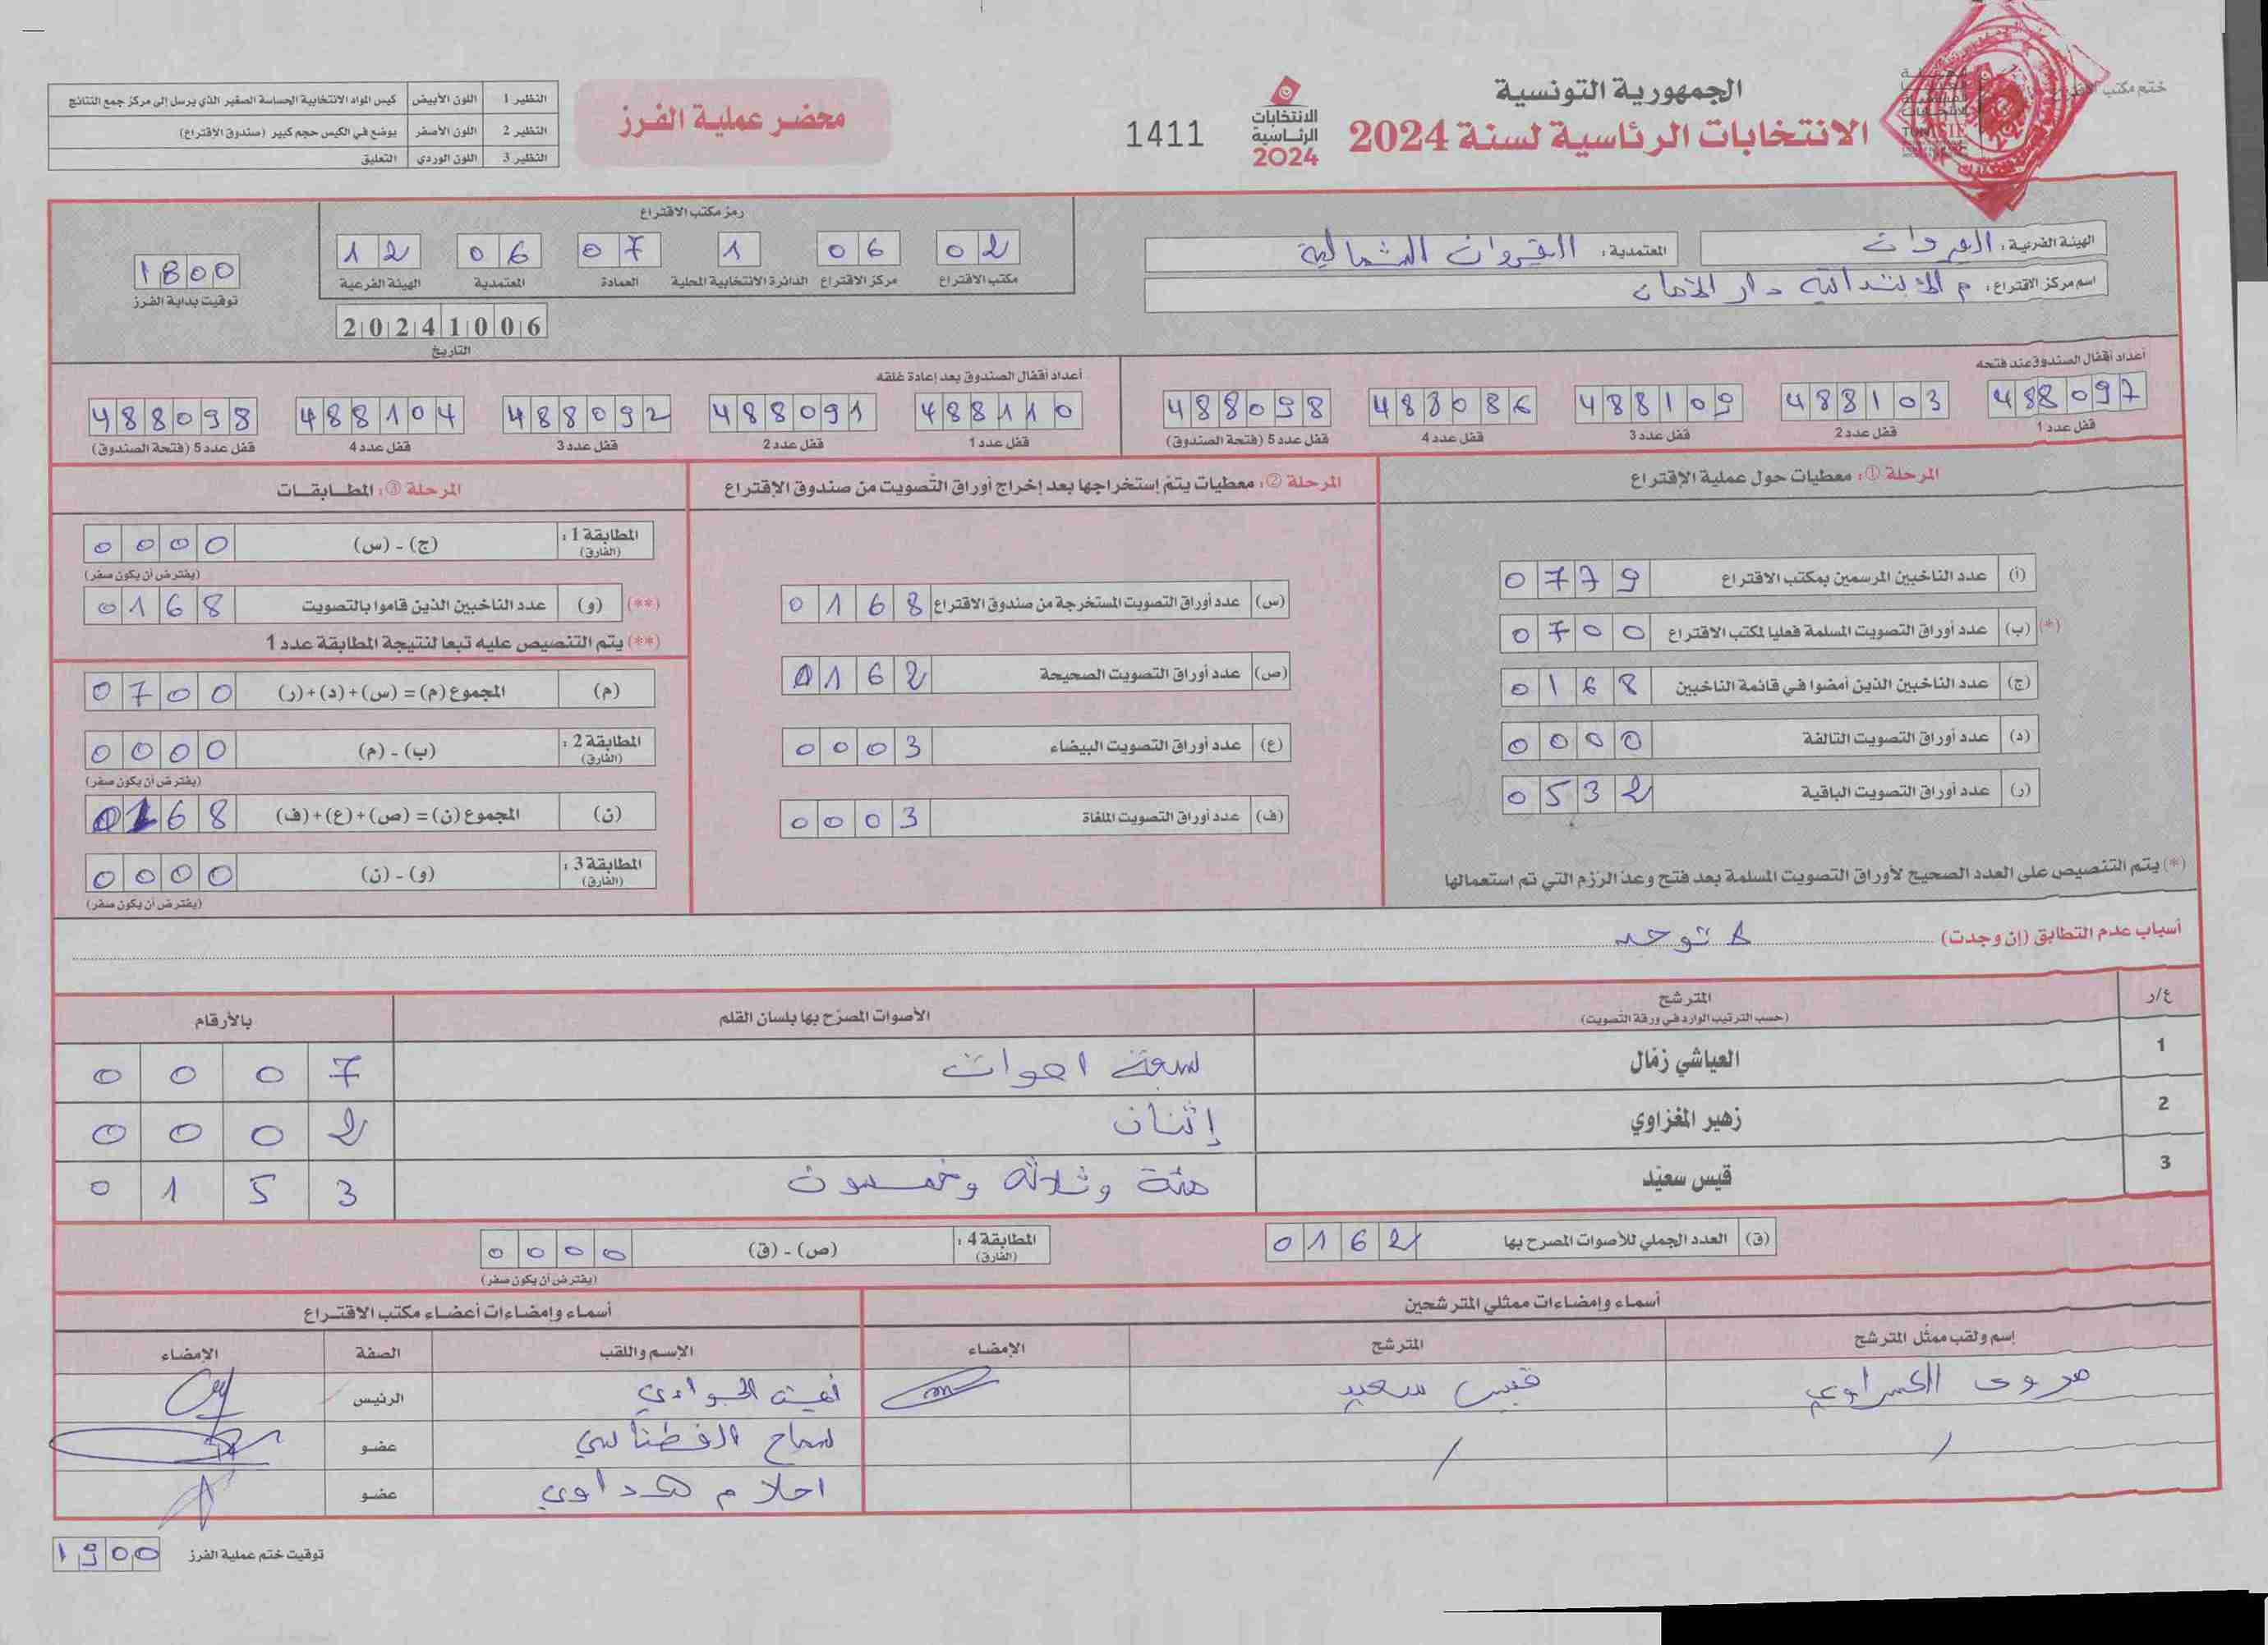 ختم مكتب الاقتراع
الجمهورية التونسية
الانتخابات الرئاسية لسنة 2024
الانتخابات
الرئاسية
2024
1411
محضر عملية الفرز
النظير 1 اللون الأبيض كيس المواد الانتخابية الحساسة الصغير الذي يرسل إلى مركز جمع النتائج
النظير 2 اللون الأصفر يوضع في الكيس حجم كبير (صندوق الإقتراع)
النظير 3 اللون الوردي التعليق
الهيئة الفرعية: القيروان
المعتمدية: القيروان الشمالية
اسم مركز الاقتراع: م الابتدائية دار الأمان
رمز مكتب الاقتراع
02 مكتب الاقتراع
06 مركز الاقتراع
1 الدائرة الانتخابية المحلية
07 العمادة
06 المعتمدية
12 الهيئة الفرعية
20241006
التاريخ
1800
توقيت بداية الفرز
أعداد أقفال الصندوق عند فتحه
488097 قفل عدد 1
488103 قفل عدد 2
488109 قفل عدد 3
488086 قفل عدد 4
488098 قفل عدد 5 (فتحة الصندوق)
أعداد أقفال الصندوق بعد إعادة غلقه
488110 قفل عدد 1
488091 قفل عدد 2
488092 قفل عدد 3
488104 قفل عدد 4
488098 قفل عدد 5 (فتحة الصندوق)
المرحلة ①: معطيات حول عملية الإقتراع
(أ) عدد الناخبين المرسمين بمكتب الاقتراع 0779
(*) (ب) عدد أوراق التصويت المسلمة فعليا لمكتب الاقتراع 0700
(ج) عدد الناخبين الذين أمضوا في قائمة الناخبين 0168
(د) عدد أوراق التصويت التالفة 0000
(ر) عدد أوراق التصويت الباقية 0532
(*) يتم التنصيص على العدد الصحيح لأوراق التصويت المسلمة بعد فتح وعدّ الرّزم التي تم استعمالها
المرحلة ②: معطيات يتم إستخراجها بعد إخراج أوراق التّصويت من صندوق الإقتراع
(س) عدد أوراق التصويت المستخرجة من صندوق الاقتراع 0168
(ص) عدد أوراق التصويت الصحيحة 0162
(ع) عدد أوراق التصويت البيضاء 0003
(ف) عدد أوراق التصويت الملغاة 0003
المرحلة ③: المطابقات
المطابقة 1: (الفارق) (ج) - (س) 0000
(يفترض أن يكون صفر)
(**) (و) عدد الناخبين الذين قاموا بالتصويت 0168
(**) يتم التنصيص عليه تبعا لنتيجة المطابقة عدد 1
(م) المجموع (م) = (س)+(د)+(ر) 0700
المطابقة 2: (الفارق) (ب) - (م) 0000
(يفترض أن يكون صفر)
(ن) المجموع (ن) = (ص)+(ع)+(ف) 0168
المطابقة 3: (الفارق) (و) - (ن) 0000
(يفترض أن يكون صفر)
أسباب عدم التطابق (إن وجدت) لا توجد
ع/ر المترشح الأصوات المصرّح بها بلسان القلم بالأرقام
(حسب الترتيب الوارد في ورقة التّصويت)
1 العياشي زمّال سبعة اصوات 0007
2 زهير المغزاوي إثنان 0002
3 قيس سعيّد مئة وثلاثة وخمسون 0153
(ق) العدد الجملي للأصوات المصرح بها 0162
المطابقة 4: (الفارق) (ص) - (ق) 0000
(يفترض أن يكون صفر)
أسماء وإمضاءات ممثلي المترشحين
إسم ولقب ممثّل المترشح المترشح الإمضاء
مروى الكسراوي قيس سعيد
/ /
أسماء وإمضاءات أعضاء مكتب الاقتراع
الإسم واللقب الصفة الإمضاء
الجوادي الرئيس
سماح القطناسي عضو
احلام هداوي عضو
توقيت ختم عملية الفرز 1900